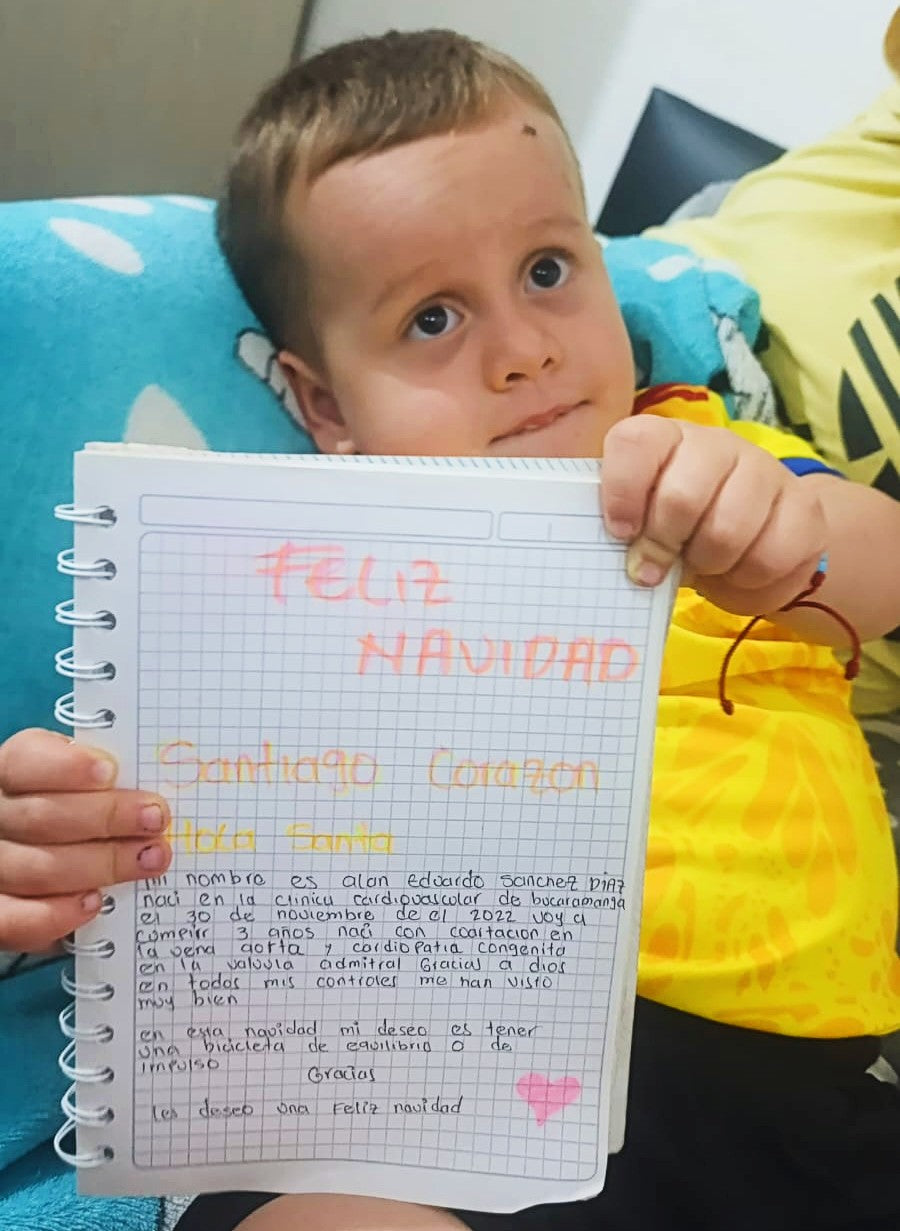 FELIZ
NAVIDAD
Santiago Corazon
Hola Santa
mi nombre es alan eduardo sanchez DIAZ
naci en la clinica cardiovascular de bucaramanga
el 30 de noviembre de el 2022 voy a
cumplir 3 años naci con coartacion en
la vena aorta y cardiopatia congenita
en la valvula admitral Gracias a dios
en todos mis controles me han visto
muy bien
en esta navidad mi deseo es tener
una bicicleta de equilibrio o de
impulso
Gracias
les deseo una Feliz navidad